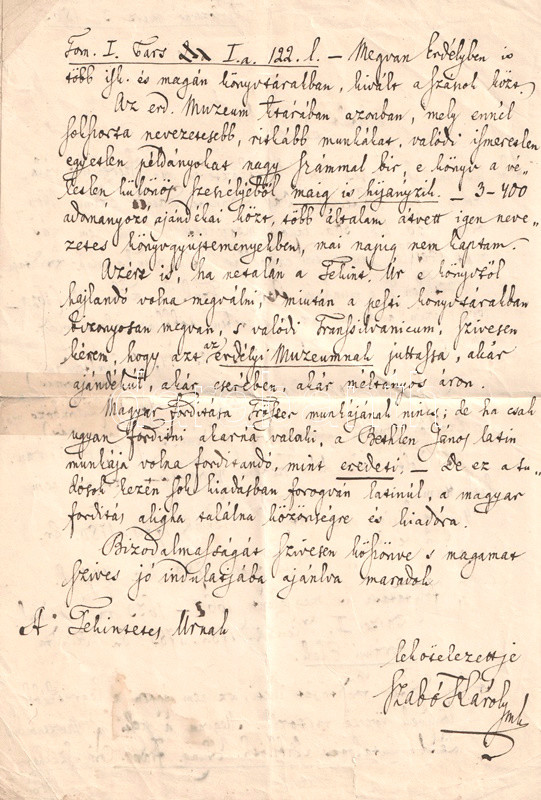 Tom. I. Pars I.a. 122. l. — Megvan Erdélyben is
több isk. és magán könyvtárakban, kivált a szászok közt.
Az erd. Muzeum ktárában azonban, mely ennél
sokszorta nevezetesebb, ritkább munkákat, valódi ismeretlen
egyetlen példányokat nagy számmal bir, e könyv a vé-
letlen különös szeszélyéből maig is hijanyzik. — 3–400
adományozó ajándékai közt, több általam átvett igen neve-
zetes könyvgyüjteményekben, mai napig nem kaptam.
Azért is, ha netalán a Tekint. Úr e könyvtől
hajlandó volna megválni, miután a pesti könyvtárakban
bizonyosan megvan, s valódi Transsilvanicum, szivesen
kérem, hogy azt az erdélyi Muzeumnak juttassa, akár
ajándékúl, akár cserében, akár méltányos áron.
Magyar fordítása Tröster munkájának nincs; de ha csak
ugyan fordítni akarná valaki, a Bethlen János latin
munkája volna fordítandó, mint eredeti; — De ez a tu-
dósok kezén sok kiadásban forogván latinúl, a magyar
fordítás aligha találna közönségre és kiadóra.
Bizodalmasságát szivesen köszönve s magamat
szives jó indulatjába ajánlva maradok
A' Tekintetes Urnak
lekötelezettje
Szabó Károly mk